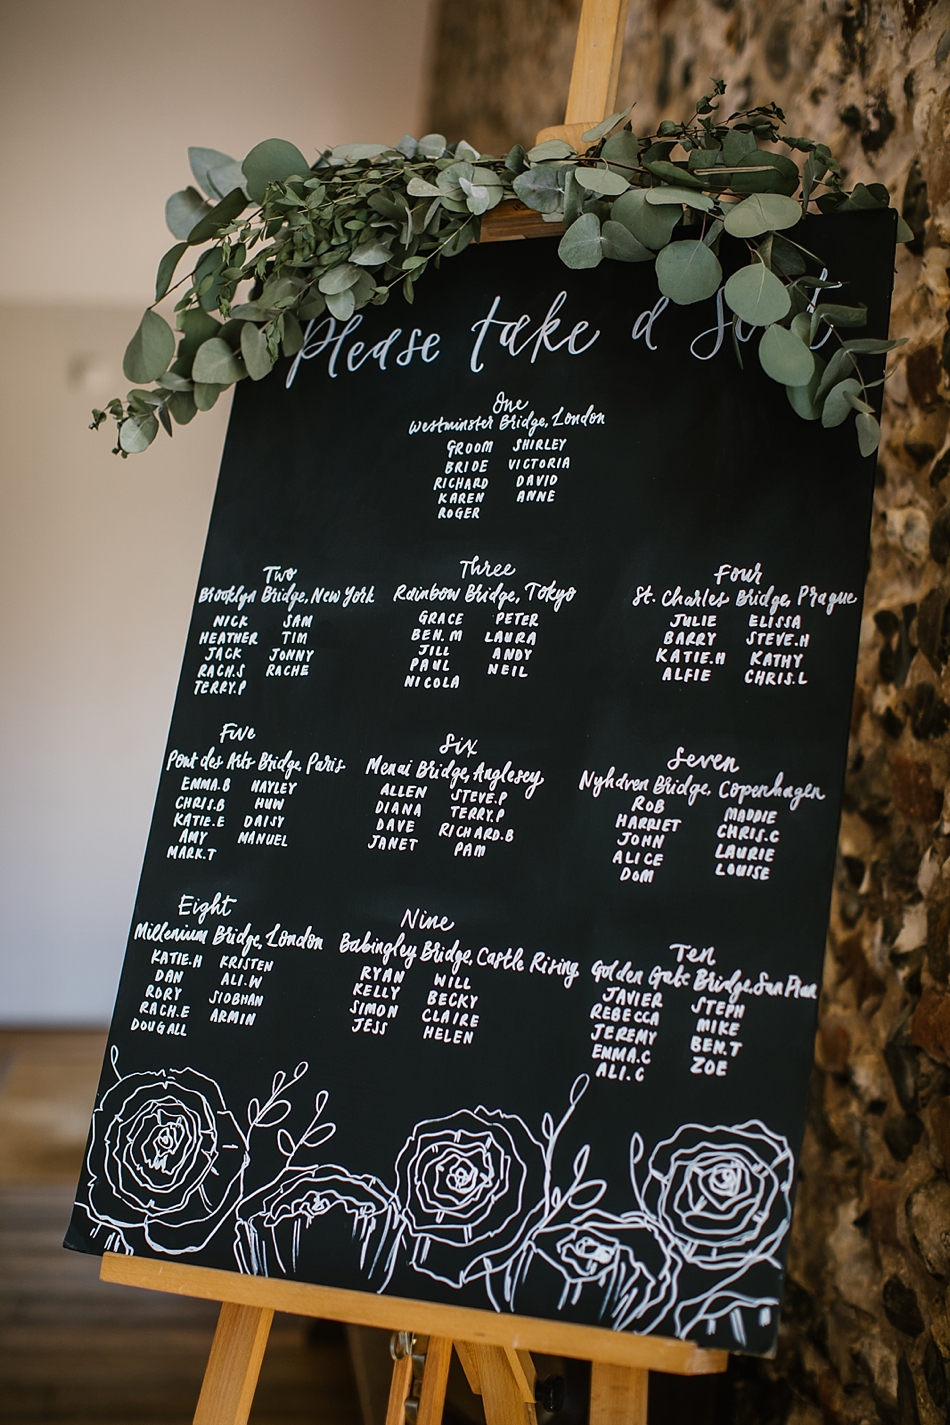 Please take a
One
Westminster Bridge, London
GROOM SHIRLEY
BRIDE VICTORIA
RICHARD DAVID
KAREN ANNE
ROGER
Two
Brooklyn Bridge, New York
NICK SAM
HEATHER TIM
JACK JONNY
RACH.S RACHE
TERRY.P
Three
Rainbow Bridge, Tokyo
GRACE PETER
BEN.M LAURA
JILL ANDY
PAUL NEIL
NICOLA
Four
St. Charles Bridge, Prague
JULIE ELISSA
BARRY STEVE.H
KATIE.H KATHY
ALFIE CHRIS.L
Five
Pont des Arts Bridge, Paris
EMMA.B HAYLEY
CHRIS.B HUW
KATIE.E DAISY
AMY MANUEL
MARK.T
Six
Menai Bridge, Anglesey
ALLEN STEVE.P
DIANA TERRY.P
DAVE RICHARD.B
JANET PAM
Seven
Nyhaven Bridge, Copenhagen
ROB MADDIE
HARRIET CHRIS.C
JOHN LAURIE
ALICE LOUISE
DOM
Eight
Millenium Bridge, London
KATIE.H KRISTEN
DAN ALI.W
RORY SIOBHAN
RACH.E ARMIN
DOUGALL
Nine
Babingley Bridge, Castle Rising
RYAN WILL
KELLY BECKY
SIMON CLAIRE
JESS HELEN
Ten
Golden Gate Bridge, San Fran
JAVIER STEPH
REBECCA MIKE
JEREMY BEN.T
EMMA.C ZOE
ALI.C